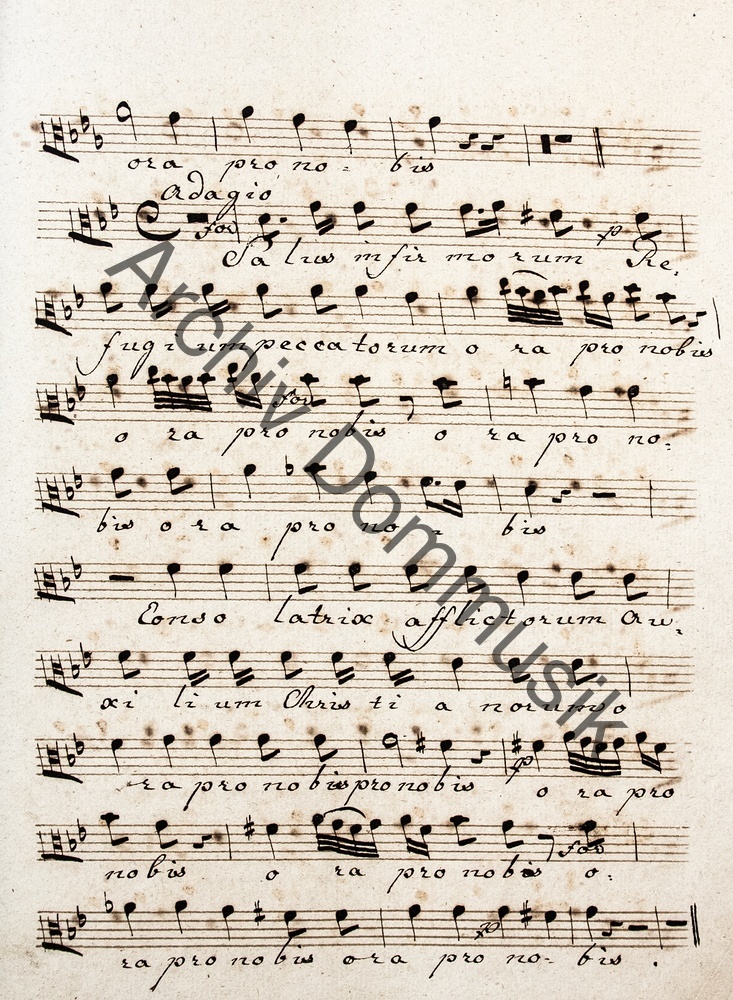 ora pro no - bis
Adagio
for
p
Salus infirmorum Re:
fugium peccatorum o ra pro nobis
for
o ra pro nobis o ra pro no:
bis o ra pro no - bis
Conso latrix afflictorum au:
xi li um Chris ti a norum o
p
ra pro nobis pro nobis o ra pro
for
nobis o ra pro nobis o:
p
ra pro nobis ora pro no - bis .
Archiv Dommusik